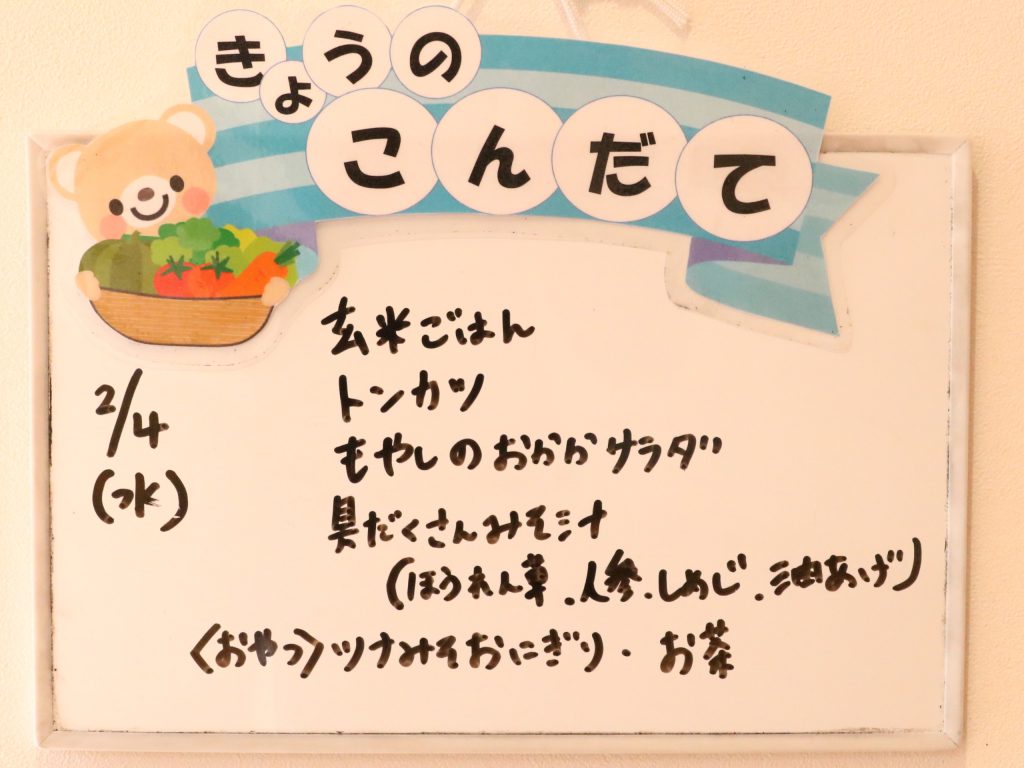 きょうの
こんだて
2/4
(水)
玄米ごはん
トンカツ
もやしのおかかサラダ
具だくさんみそ汁
(ほうれん草.人参.しめじ.油あげ)
〈おやつ〉ツナみそおにぎり・お茶